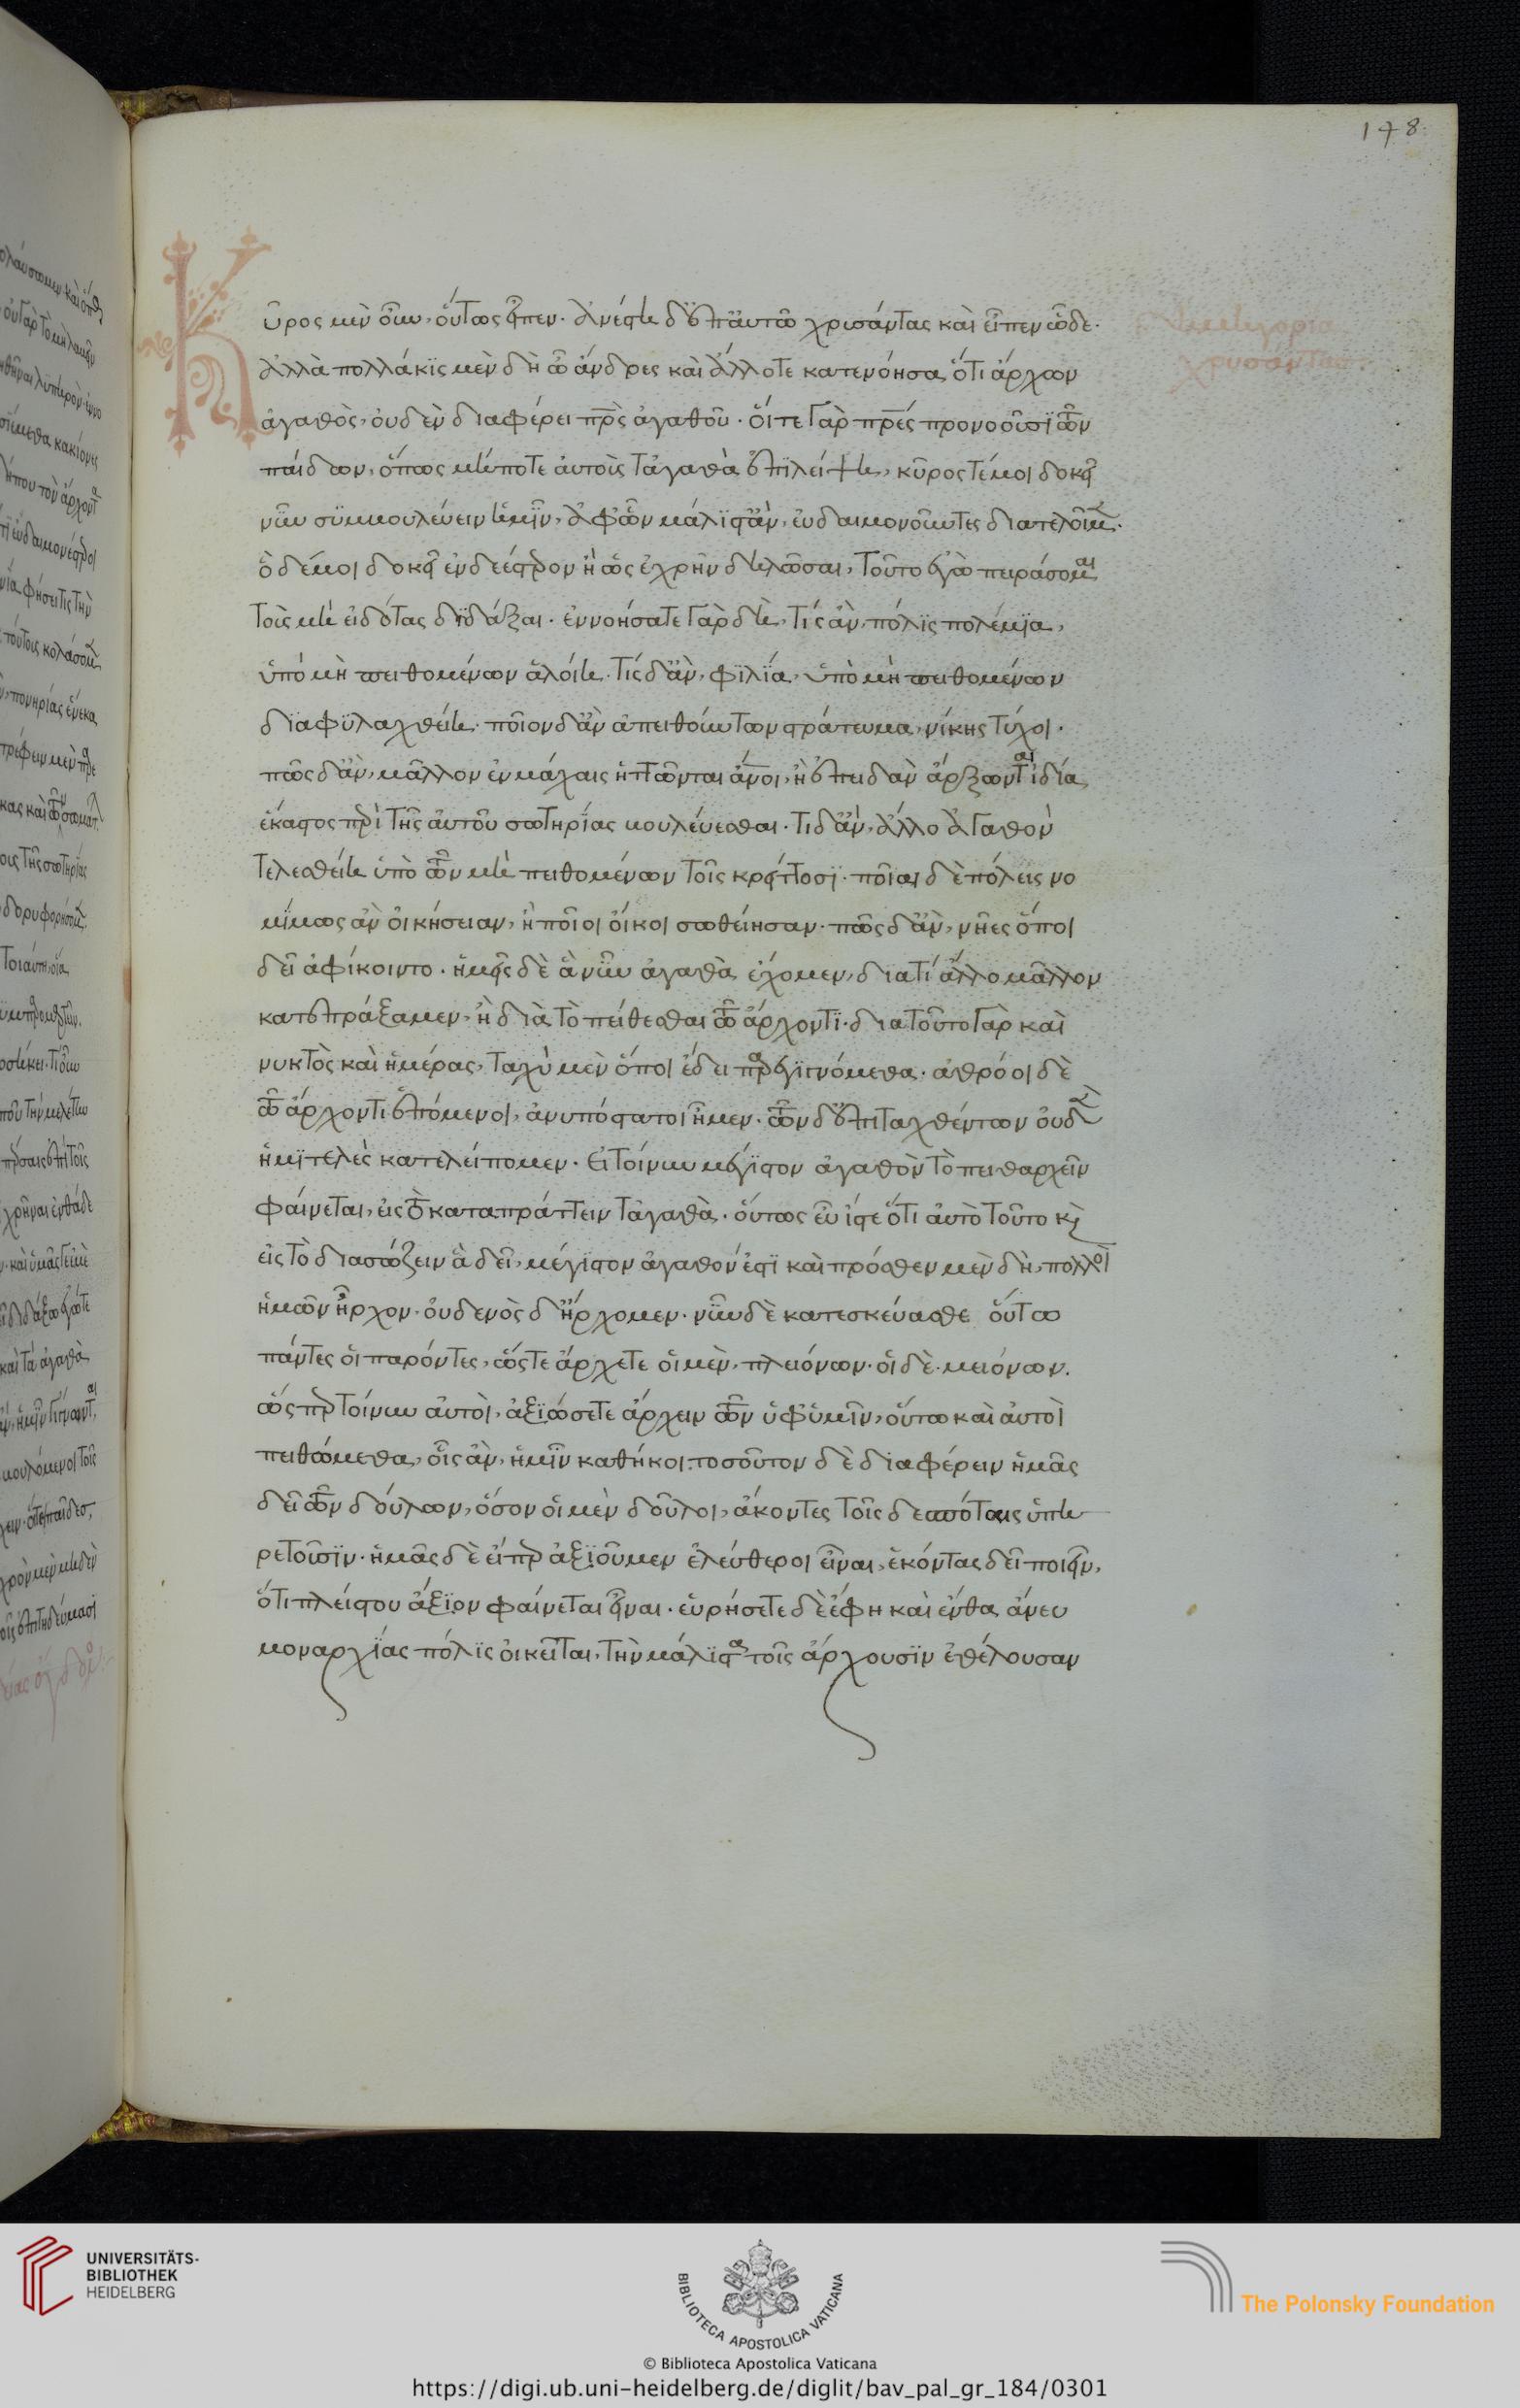 178
Κῦρος μὲν οὖν, οὕτως εἶπεν. ἀνέστη δ' ἐπ' αὐτῶ χρισάντας καὶ εἶπεν ὧδε.
δημηγορία
χρυσάντου.
ἀλλὰ πολλάκϊς μὲν δὴ ὦ ἄνδρες καὶ ἄλλοτε κατενόησα, ὅτι ἄρχων
ἀγαθὸς, οὐδὲν διαφέρει πρ̅ς ἀγαθοῦ. οἵ τε γὰρ πρ̅ές προνοοῦσϊ τῶν
παίδων, ὅπως μήποτε αὐτοὺς τἀγαθὰ ἐπϊλείψη, κῦρος τέ μοι δοκεῖ
νῦν συμβουλεύειν ἡμῖν, ἀφ' ὧν μάλϊστ' ἂν, εὐδαιμονοῦντες διατελοῖμεν.
ὃ δέ μοι δοκεῖ ἐνδεέστερον ἢ ὡς ἐχρῆν δηλῶσαι, τοῦτο ἐγὼ πειράσομαι
τοὺς μὴ εἰδότας δϊδάξαι. ἐννοήσατε γὰρ δὴ, τίς ἂν, πόλϊς πολέμϊα,
ὑπὸ μὴ πειθομένων ἁλοίη. τίς δ' ἂν, φϊλΐα, ὑπὸ μὴ πειθομένων
δϊαφϋλαχθείη. ποῖον δ' ἂν ἀπειθούντων στράτευμα, νίκης τύχοι.
πῶς δ' ἂν, μᾶλλον ἐν μάχαις ἡττῶνται ἄν̅οι, ἢ ἐπειδὰν ἄρξωνται ἰδία
ἕκαστος περὶ τῆς αὐτοῦ σωτηρίας βουλεύεσθαι. τί δ' ἂν, ἄλλο ἀγαθὸν
τελεσθείη ὑπὸ τῶν μὴ πειθομένων τοῖς κρείττοσϊ. ποῖαι δὲ πόλεις νο
μΐμως ἂν οἰκήσειαν, ἢ ποῖοι οἶκοι σωθείησαν. πῶς δ' ἂν, νῆες ὅποι
δεῖ ἀφίκοιντο. ἡμεῖς δὲ ἃ νῦν ἀγαθὰ ἔχομεν, διατί ἄλλο μᾶλλον
κατεπράξαμεν, ἢ διὰ τὸ πείθεσθαι τῶ ἄρχοντϊ. δια τοῦτο γὰρ καὶ
νυκτὸς καὶ ἡμέρας, ταχὺ μὲν ὅποι ἔδει παρεγϊγνόμεθα. ἀθρόοι δὲ
τῶ ἄρχοντι ἑπόμενοι, ἀνυπόστατοι ἦμεν. τῶν δ' ἐπιταχθέντων οὐδὲν
ἡμϊτελὲς κατελείπομεν. εἰ τοίνυν μέγϊστον ἀγαθὸν τὸ πειθαρχεῖν
φαίνεται, εἰς τὸ καταπράττειν τἀγαθὰ. οὕτως εὖ ἴστε ὅτι αὐτὸ τοῦτο κὶ
εἰς τὸ διασώζειν ἃ δεῖ, μέγϊστον ἀγαθόν ἐστϊ καὶ πρόσθεν μὲν δὴ, πολλοὶ
ἡμῶν ἦρχον, οὐδενὸς δ' ἤρχομεν. νῦν δὲ κατεσκεύασθε οὕτω
πάντες οἱ παρόντες, ὥς τε ἄρχετε οἱ μὲν, πλειόνων. οἱ δὲ, μειόνων.
ὥς περ τοίνυν αὐτοὶ, ἀξϊώσετε ἄρχειν τῶν ὑφ' ὑμῖν, οὕτω καὶ αὐτοὶ
πειθώμεθα, οἷς ἂν, ἡμῖν καθήκοι. τοσοῦτον δὲ διαφέρειν ἡμᾶς
δεῖ τῶν δούλων, ὅσον οἱ μὲν δοῦλοι, ἄκοντες τοῖς δεσπόταις ὑπη
ρετοῦσϊν. ἡμᾶς δὲ εἴπερ ἀξϊοῦμεν ἐλεύθεροι εἶναι, ἑκόντας δεῖ ποιεῖν,
ὅτι πλείστου ἄξϊον φαίνεται εἶναι. εὑρήσετε δὲ ἔφη καὶ ἔνθα ἄνευ
μοναρχΐας πόλϊς οἰκεῖται, τὴν μάλϊστα τοῖς ἄρχουσϊν ἐθέλουσαν
UNIVERSITÄTS-
BIBLIOTHEK
HEIDELBERG
BIBLIOTECA APOSTOLICA VATICANA
The Polonsky Foundation
© Biblioteca Apostolica Vaticana
https://digi.ub.uni-heidelberg.de/diglit/bav_pal_gr_184/0301